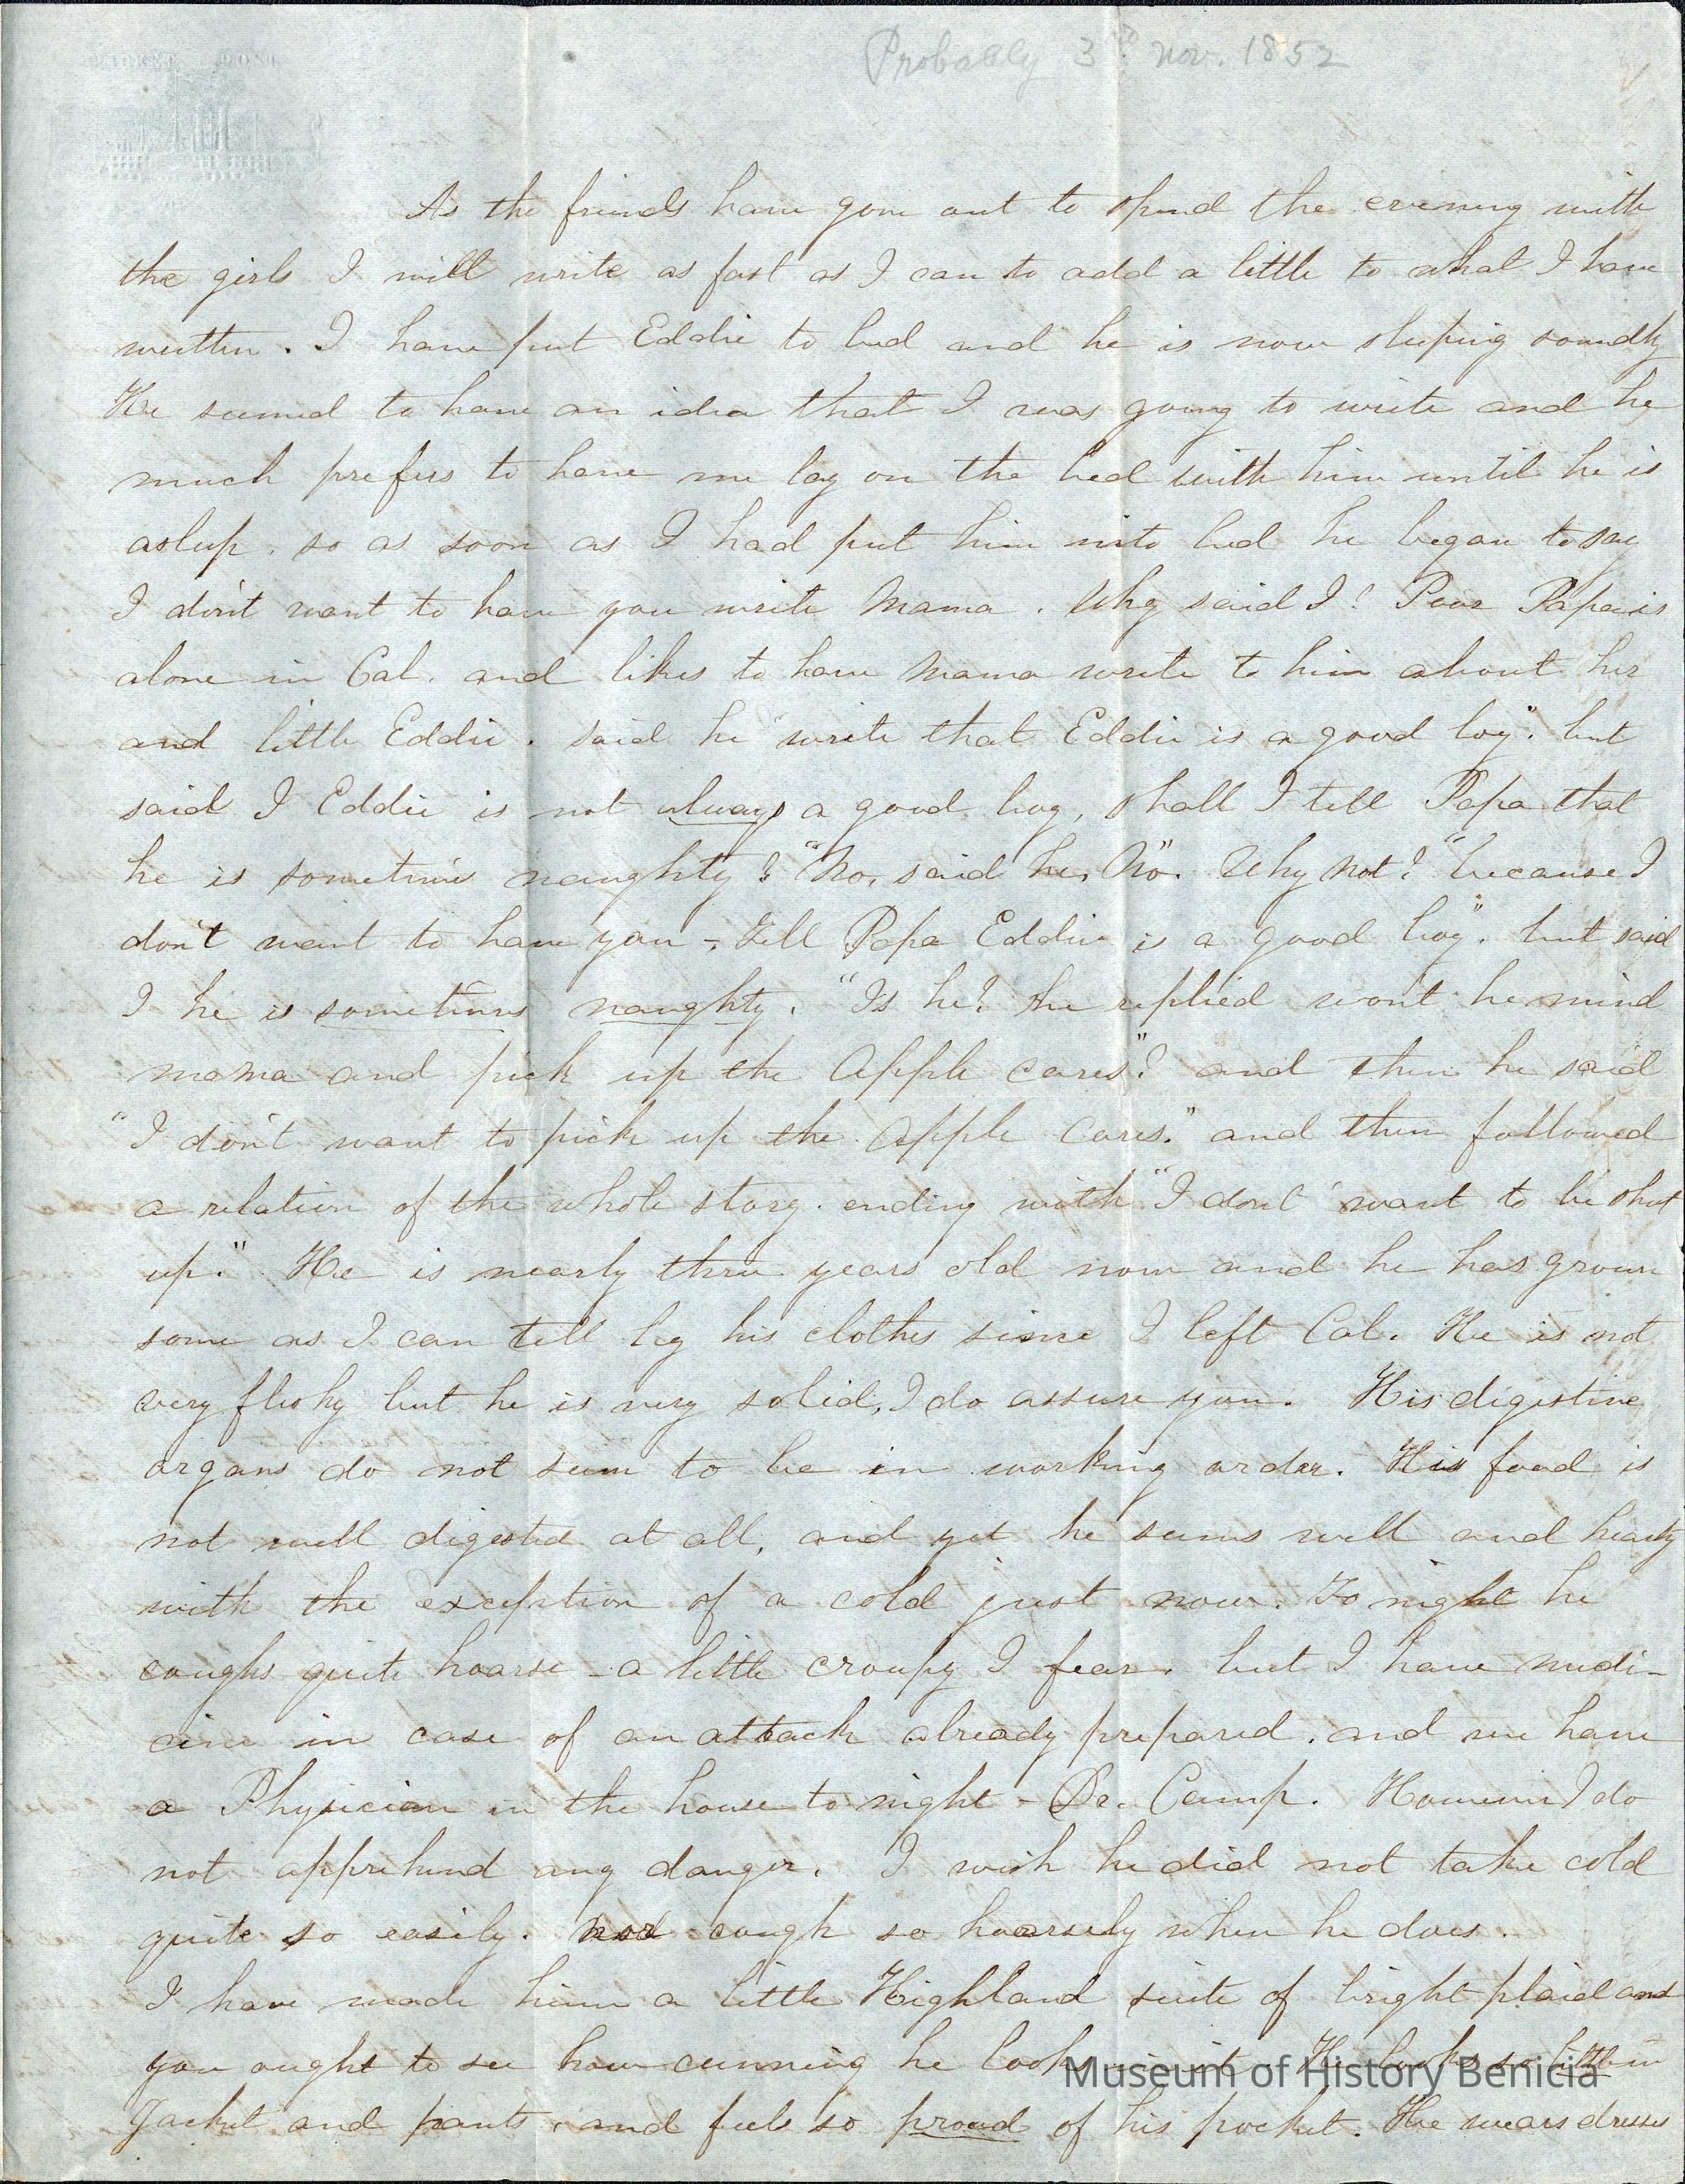 Probably 3rd Nov. 1852
As the friends have gone out to spend the evening with
the girls I will write as fast as I can to add a little to what I have
written. I have put Eddie to bed and he is now sleeping soundly
He seemed to have an idea that I was going to write and he
much prefers to have me lay on the bed with him until he is
asleep, so as soon as I had put him into bed he began to say
I don't want to have you write Mama. Why said I? Poor Papa is
alone in Cal. and likes to have Mama write to him about her
and little Eddie. said he "write that Eddie is a good boy". but
said I Eddie is not always a good boy, shall I tell Papa that
he is sometimes naughty? "No, said he, No". Why not? "because I
don't want to have you - Tell Papa Eddie is a good boy". but said
I he is sometimes naughty. "Is he? he replied won't he mind
mama and pick up the Apple cores"? and then he said
"I don't want to pick up the Apple Cores." and then followed
a relation of the whole story. ending with "I don't want to be shut
up." He is nearly three years old now and he has grown
some as I can tell by his clothes since I left Cal. He is not
very fleshy but he is very solid, I do assure you. His digestive
organs do not seem to be in working order. His food is
not well digested at all, and yet he seems well and hearty
with the exception of a cold just now. To night he
coughs quite hoarse - a little croupy I fear. but I have medi-
cine in case of an attack already prepared. and we have
a Physician in the house to night - Dr. Camp. However I do
not apprehend any danger. I wish he did not take cold
quite so easily. nor cough so hoarsely when he does.
I have made him a little Highland suite of bright plaid and
you ought to see how cunning he looks in it. He looks so little in
Jacket and pants, and feels so proud of his pocket. He wears dresses
Museum of History Benicia